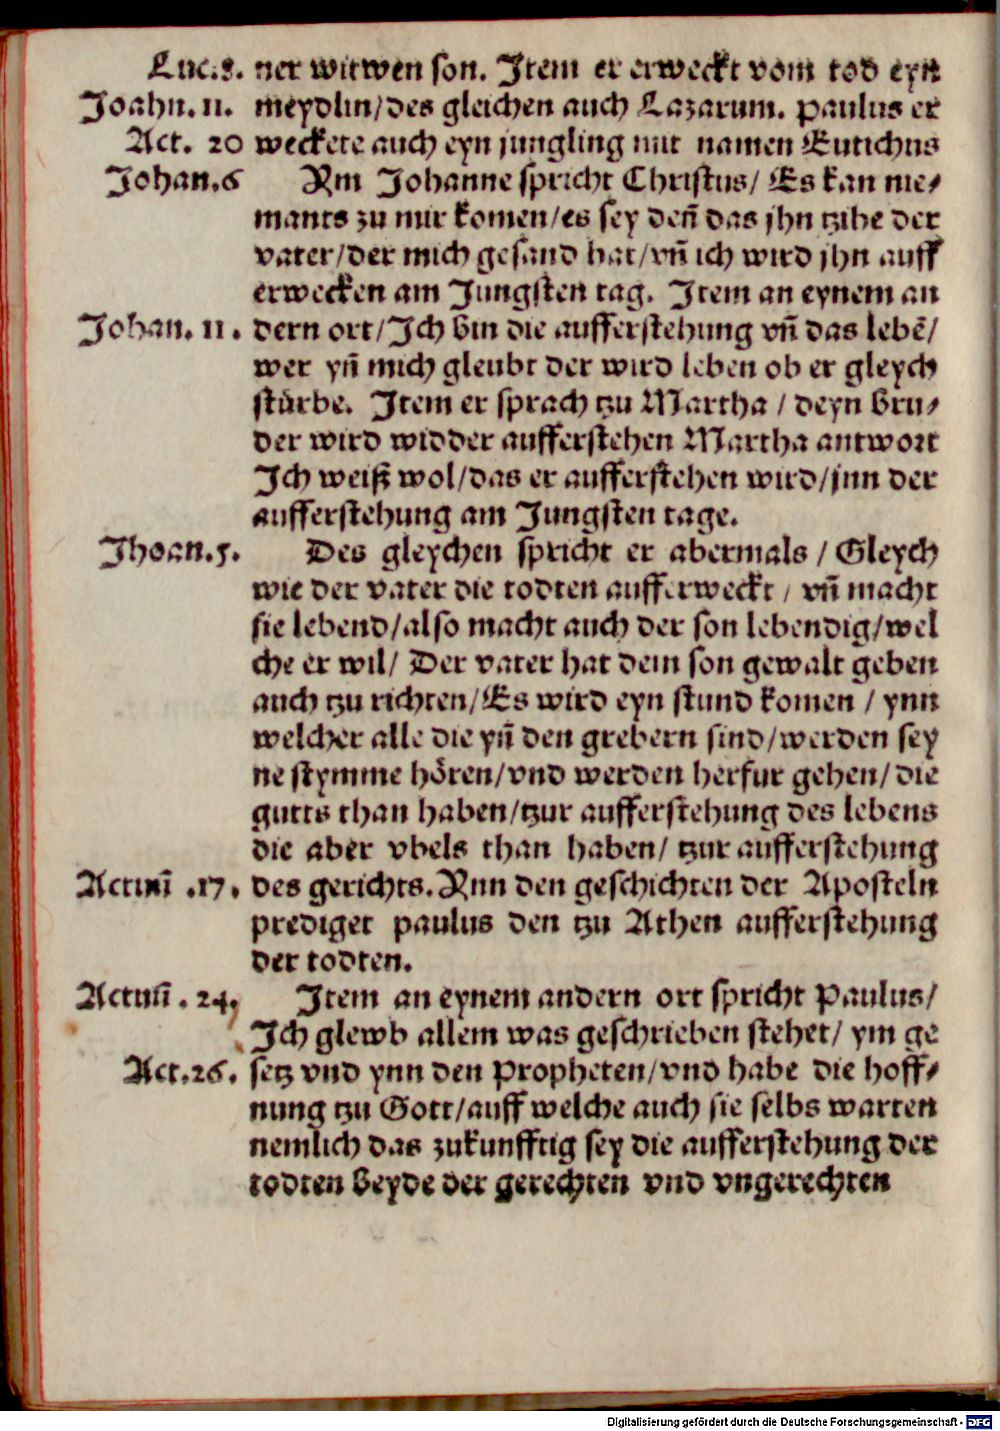 Luc.8. ner witwen son. Item er erweckt vom tod eyn
Joahn. 11. meydlin/des gleichen auch Lazarum. paulus er
Act. 20 weckete auch eyn jungling mit namen Eutichus
Johan.6 Am Johanne spricht Christus/ Es kan nie⸗
mants zu mir komen/es sey deñ das jhn tzihe der
vater/der mich gesand hat/vñ ich wird jhn auff
erwecken am Jungsten tag. Item an eynem an
Johan. 11. dern ort/Ich bin die aufferstehung vñ das lebē/
wer yñ mich gleubt der wird leben ob er gleych
stürbe. Item er sprach tzu Martha / deyn bru⸗
der wird widder aufferstehen Martha antwort
Ich weiß wol/das er aufferstehen wird/jnn der
aufferstehung am Jungsten tage.
Jhoan.5. Des gleychen spricht er abermals / Gleych
wie der vater die todten aufferweckt / vñ macht
sie lebend/also macht auch der son lebendig/wel
che er wil/ Der vater hat dem son gewalt geben
auch tzu richten/Es wird eyn stund komen / ynn
welcher alle die yñ den grebern sind/werden sey
ne stymme hören/vnd werden herfur gehen/die
gutts than haben/tzur aufferstehung des lebens
die aber vbels than haben/ tzur aufferstehung
Actuū .17. des gerichts. Ynn den geschichten der Aposteln
prediget paulus den tzu Athen aufferstehung
der todten.
Actuū . 24. Item an eynem andern ort spricht Paulus/
Ich glewb allem was geschrieben stehet/ ym ge
Act.26. setz vnd ynn den Propheten/vnd habe die hoff⸗
nung tzu Gott/auff welche auch sie selbs warten
nemlich das zukunfftig sey die aufferstehung der
todten beyde der gerechten vnd vngerechten
Digitalisierung gefördert durch die Deutsche Forschungsgemeinschaft - DFG